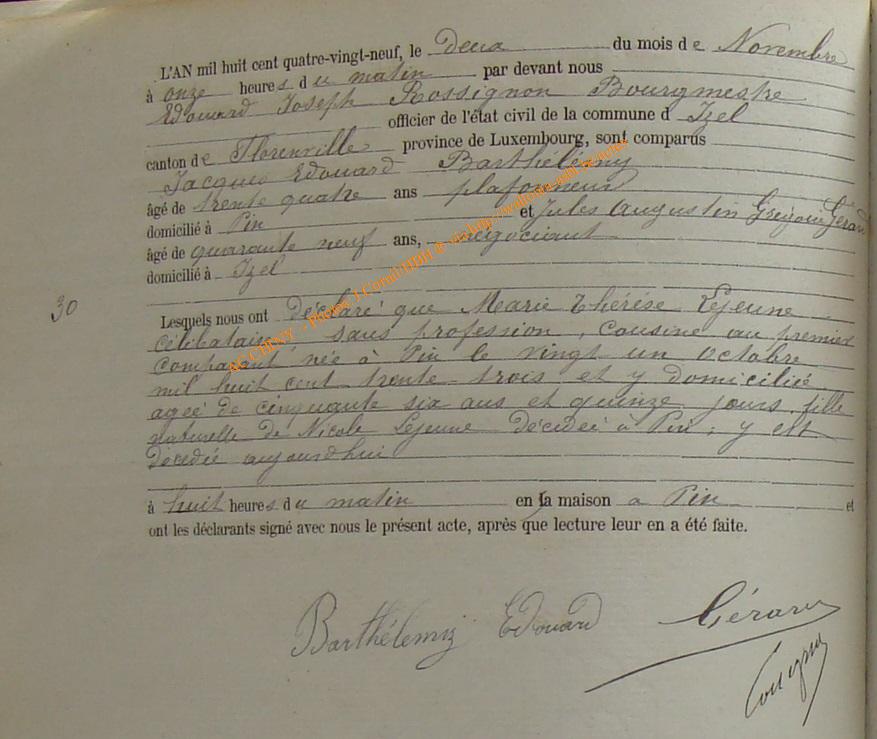 L'AN mil huit cent quatre-vingt-neuf, le Deux du mois de Novembre
à onze heures du matin par devant nous
Edouard Joseph Rossignon Bourgmestre
officier de l'état civil de la commune d Izel
canton de Florenville province de Luxembourg, sont comparus
Jacques Edouard Barthélemy
âgé de trente quatre ans plafonneur
domicilié à Pin et Jules Augustin Grégoire Gérard
âgé de quarante neuf ans, négociant
domicilié à Izel
30
Lesquels nous ont déclaré que Marie Thérèse Lejeune
célibataire sans profession, cousine au premier
comparant née à Pin le vingt un octobre
mil huit cent trente-trois et y domiciliée
agée de cinquante six ans et quinze jours, fille
naturelle de Nicole Lejeune décédée à Pin, y est
décédée aujourd'hui
à huit heures du matin en la maison a Pin et
ont les déclarants signé avec nous le présent acte, après que lecture leur en a été faite.
Barthélemy Edouard Gérard